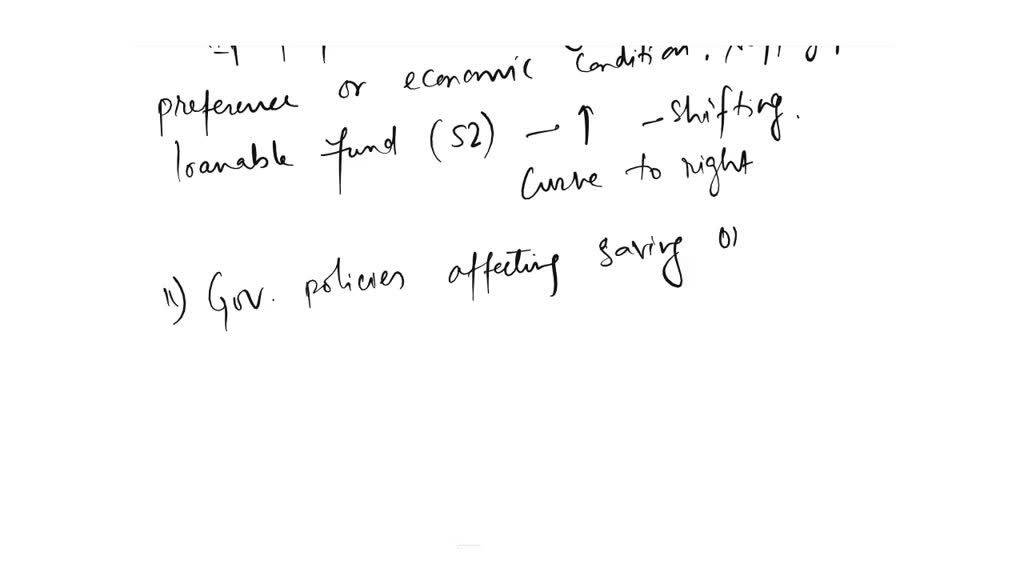 preference or economic condition.
loanable fund (S2) - ↑ - shifting.
curve to right
11) Gov. policies affecting saving